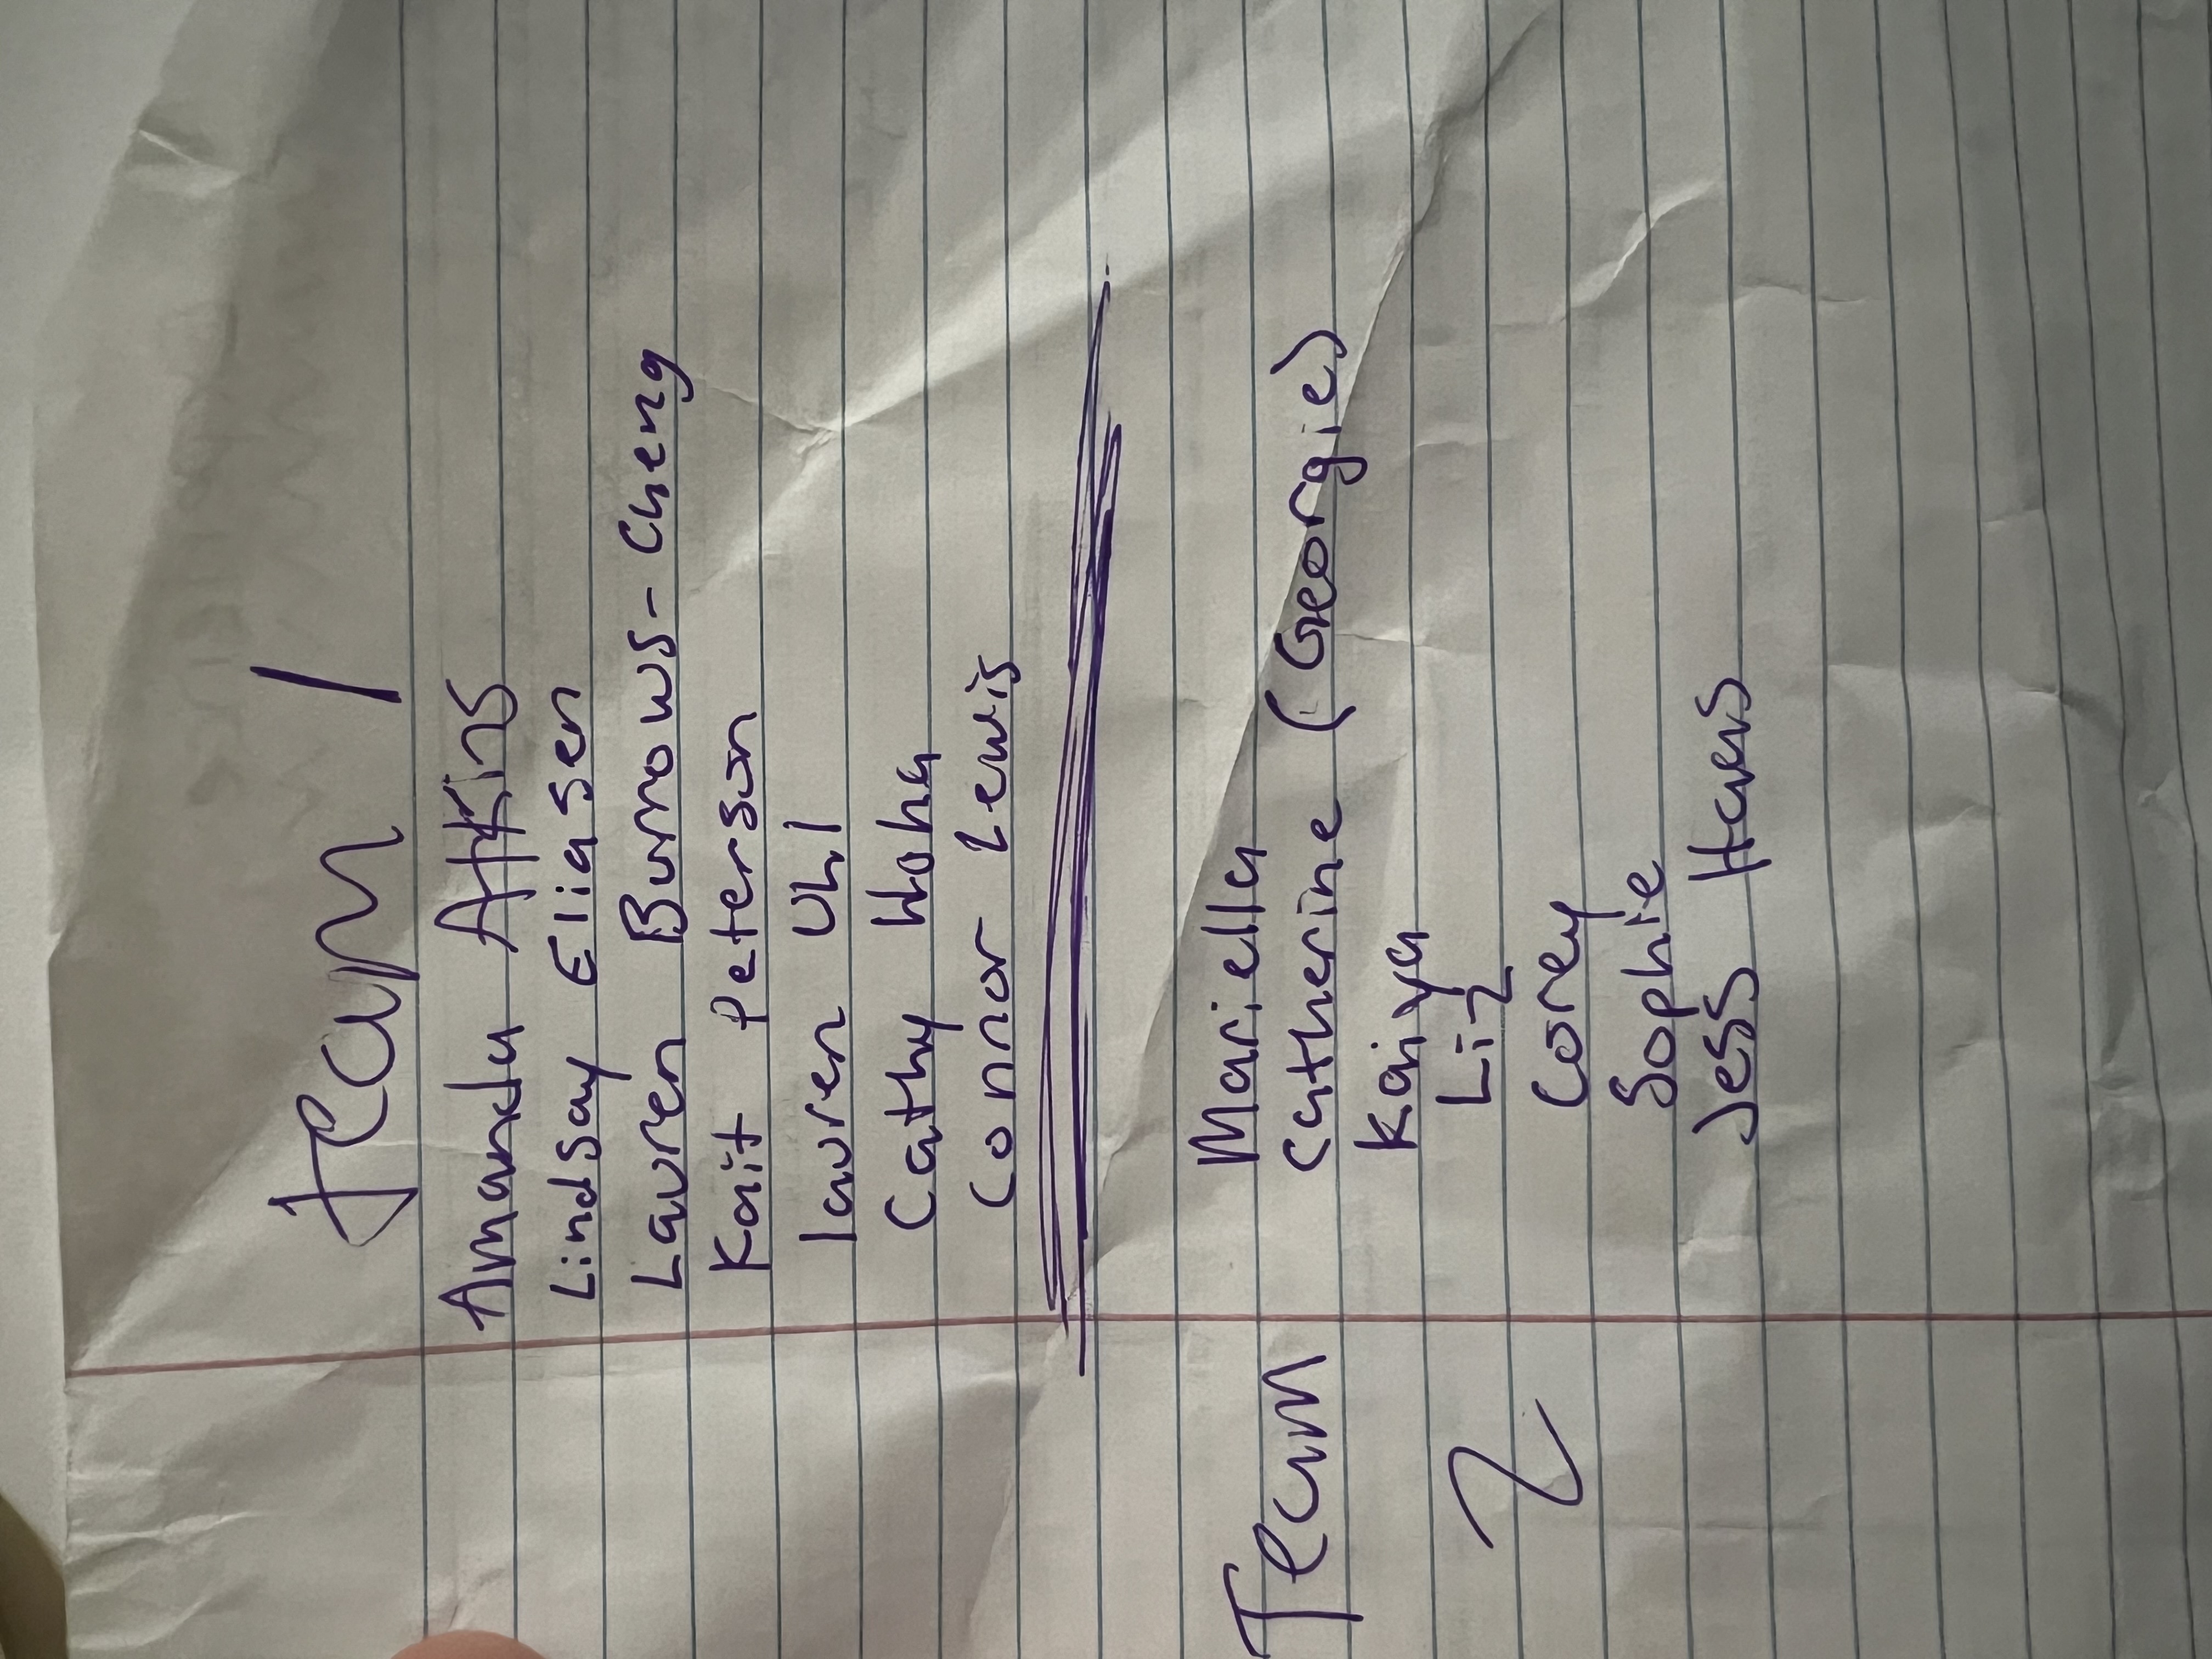 Team 1
Amanda Atkins
Lindsay Eliasen
Lauren Burrows-Cheng
Kait Peterson
lauren Uhl
Cathy Hoha
Connor Lewis
Team 2
Mariella
Catherine (Georgie)
Kaiya
Liz
Corey
Sophie
Jess Haws